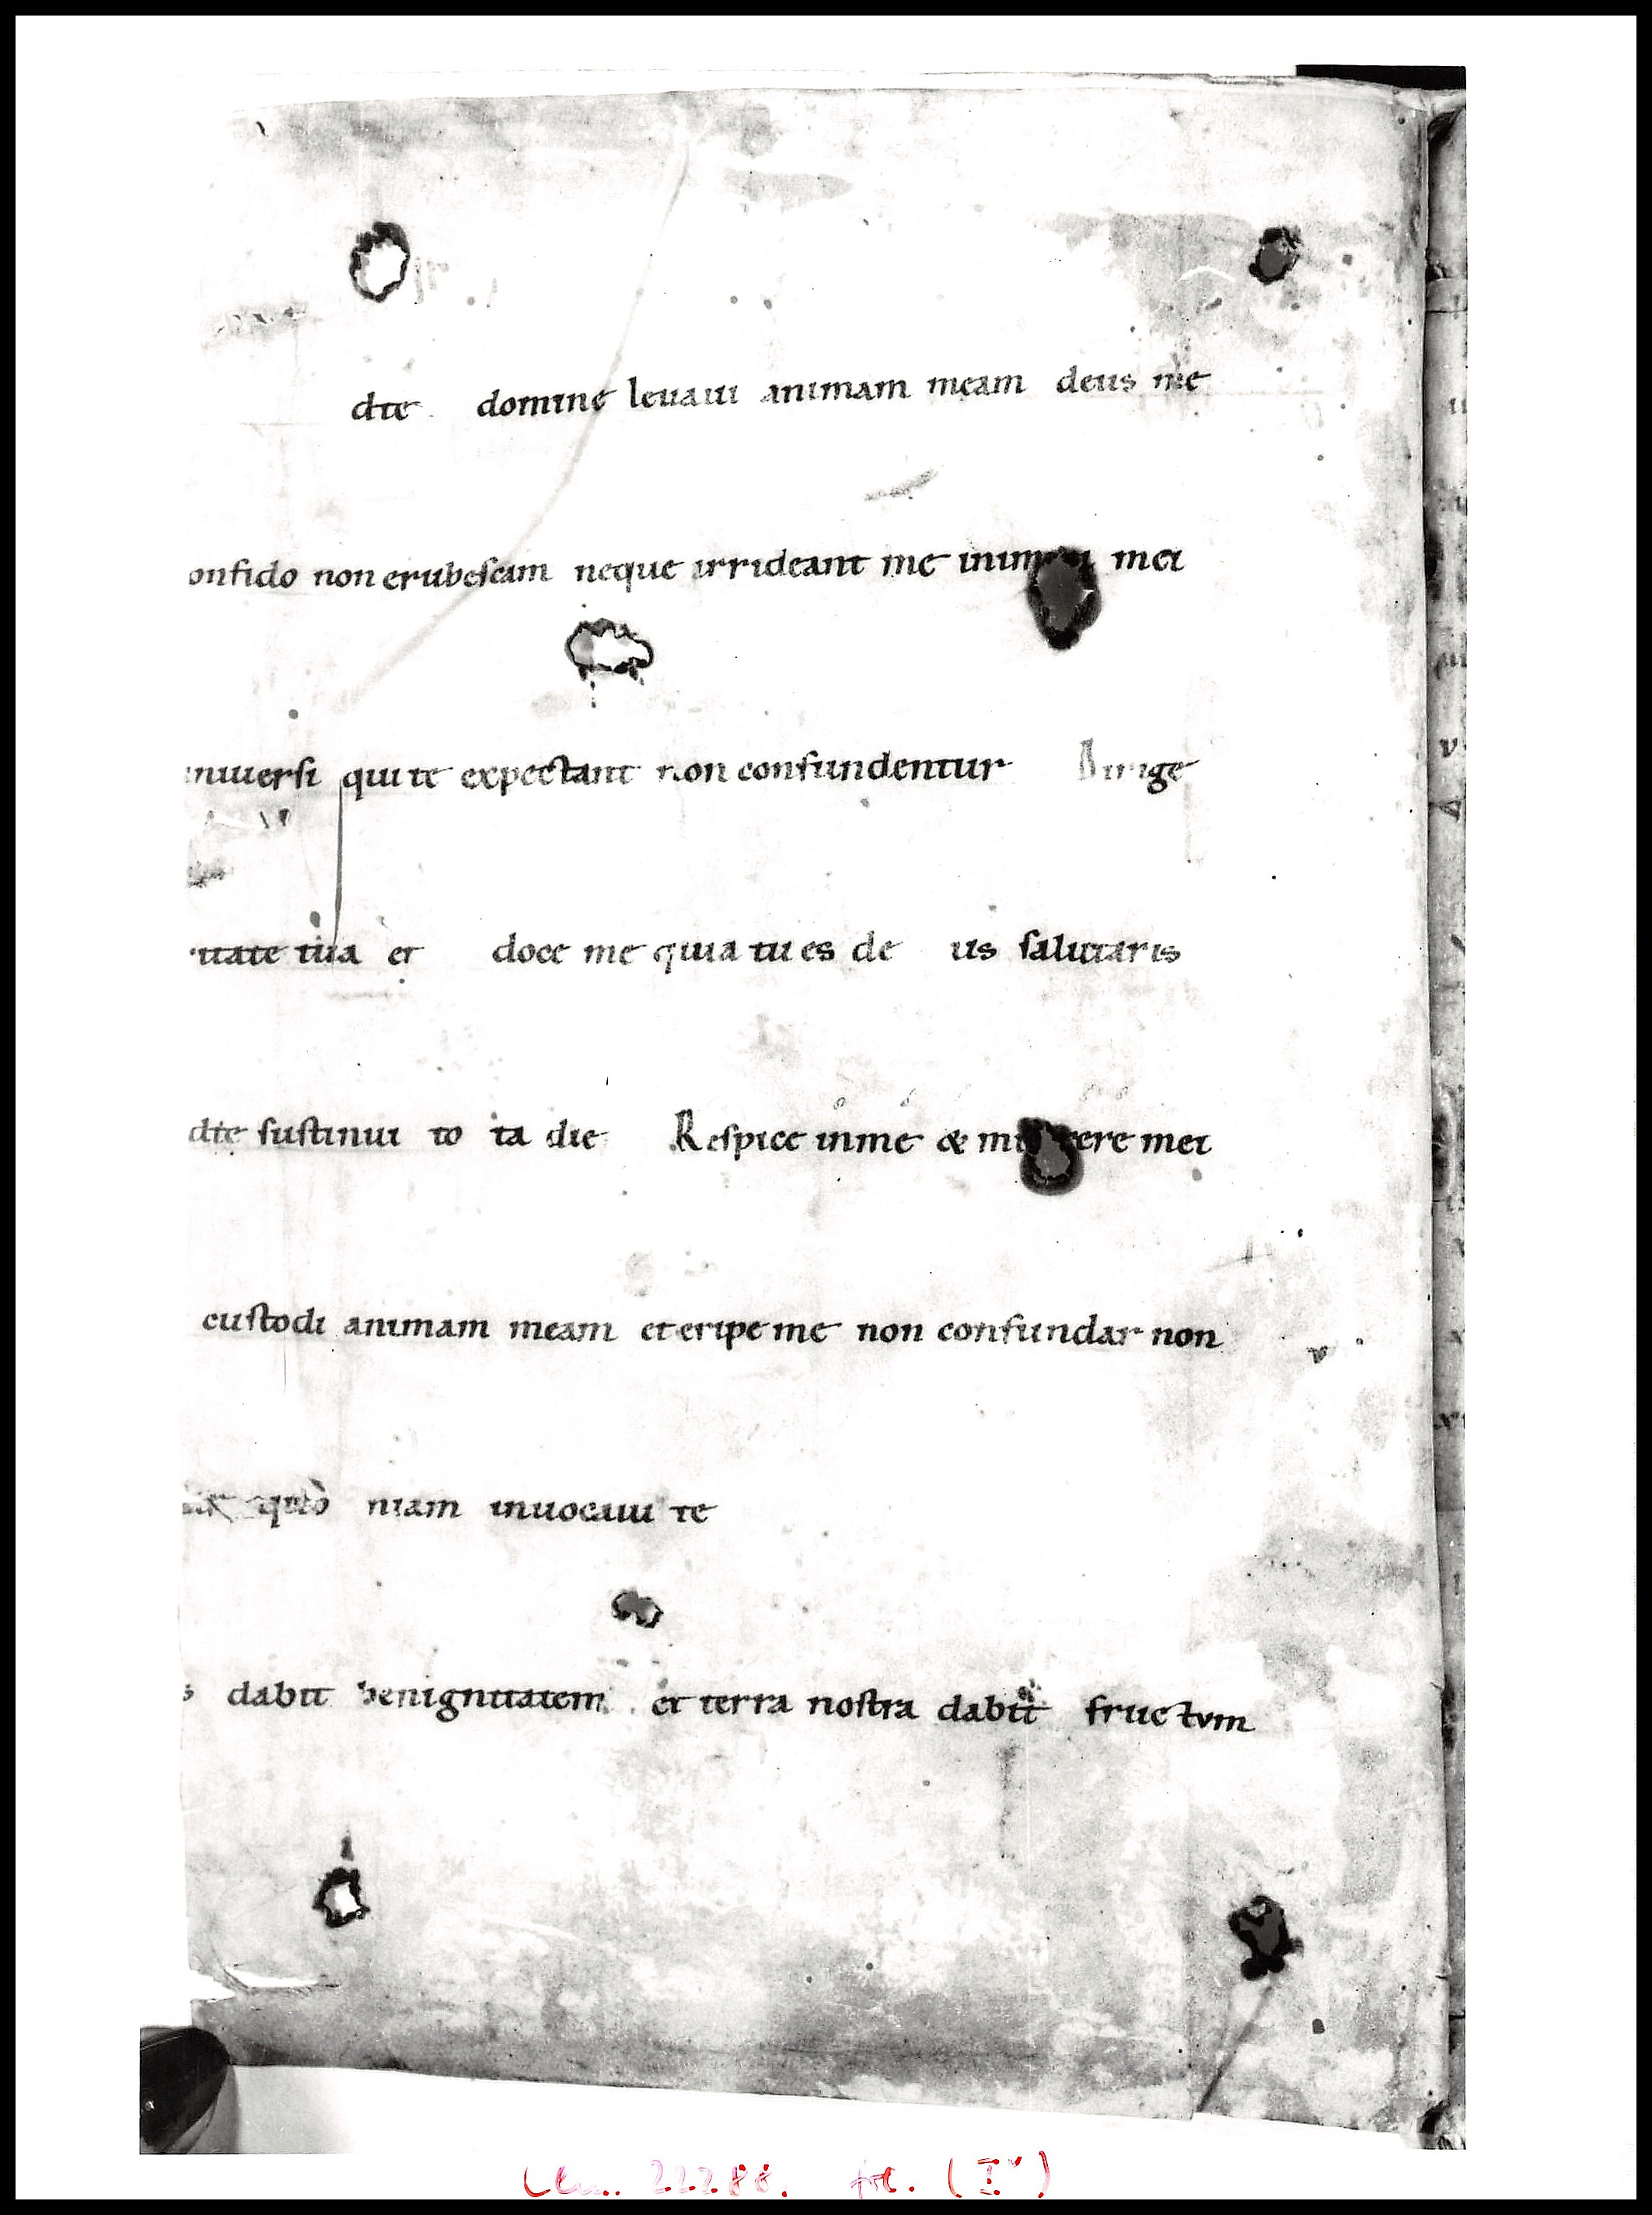 dte domine leuaui animam meam deus me
onfido non erubescam neque irrideant me inim mei
niuersi qui te expectant non confundentur Dirige
itate tua et doce me quia tu es de us salutaris
dte sustinui to ta die Respice inme & mi ere mei
custodi animam meam et eripe me non confundar non
quo niam inuocaui te
s dabit benignitatem et terra nostra dabit fructvm
Clm. 22286. (Iv)